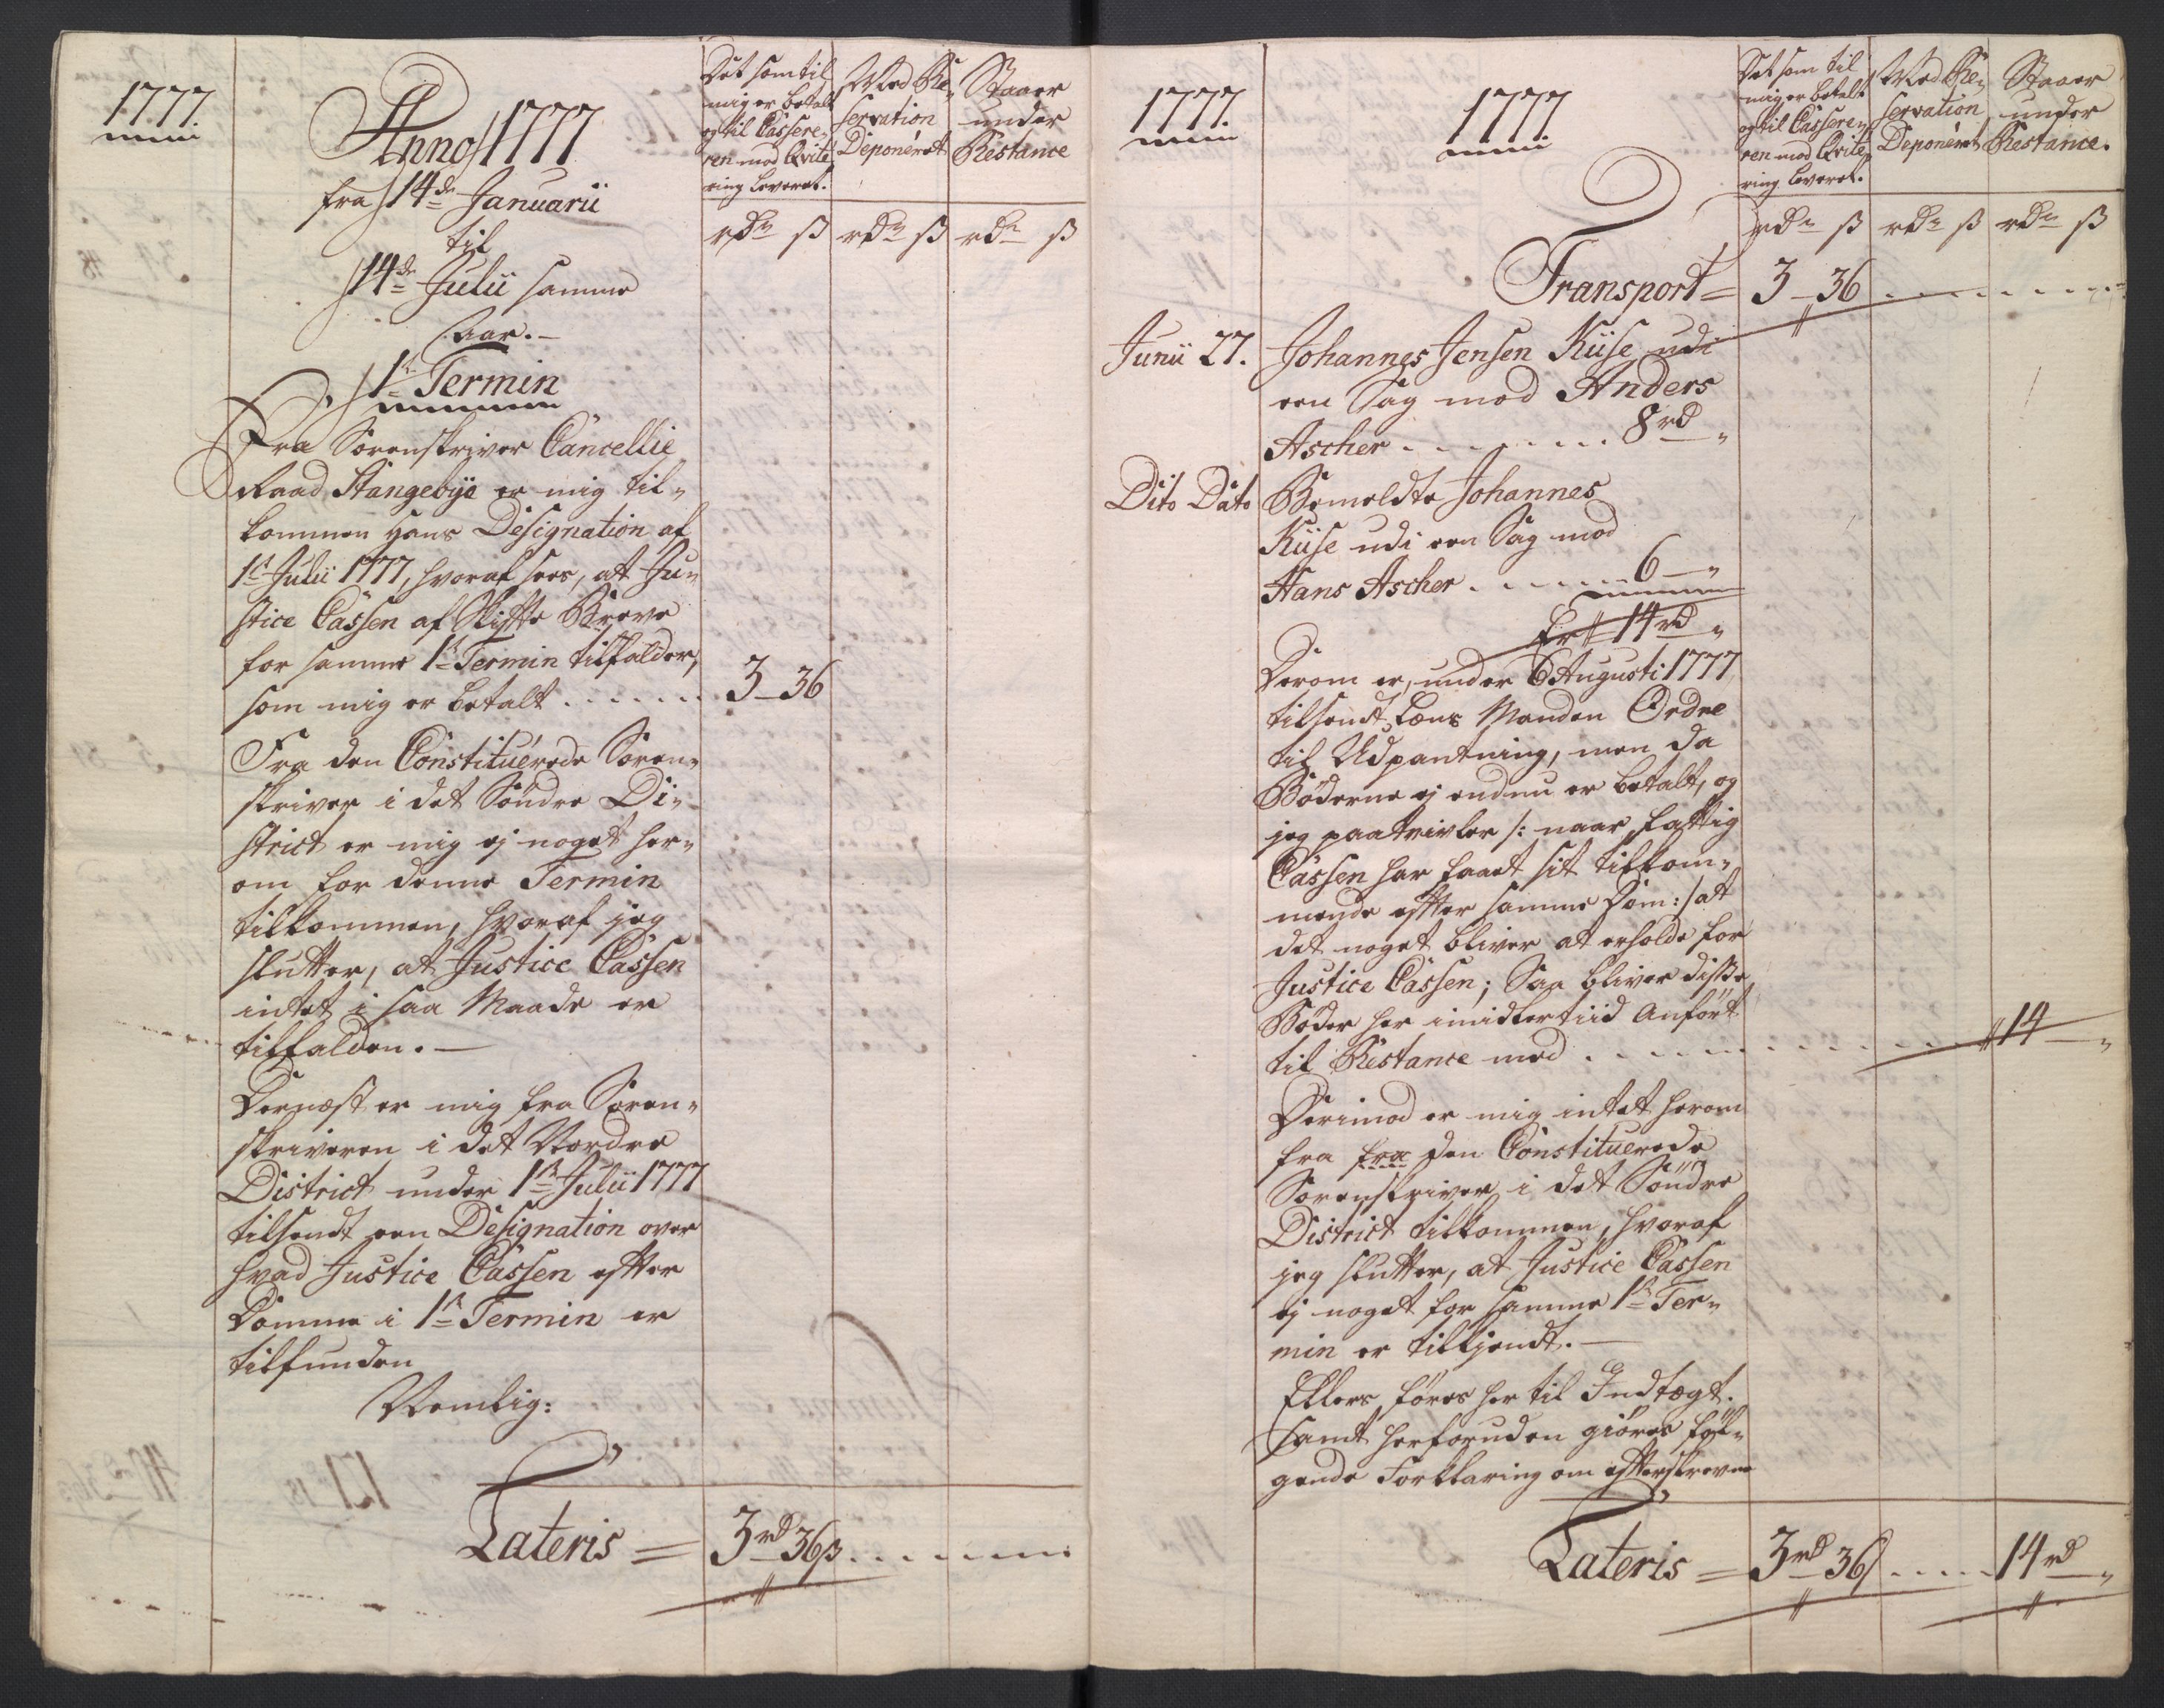 1777.
Anno 1777
fra 14de Januarii
til
14de Julii samme
Aar. —
1te Termin
Det som til
mig er betalt
og til Cassere-
ren mod Qvite-
ring leveret.
Med Re-
servation
Deponéret
Staaer
under
Réstance
rdr ß rdr ß rdr ß
Fra Sorenskriver Cancellie
Raad Stangebye er mig til-
kommen hans Designation af
1te Julii 1777, hvoraf sees, at Ju-
stice Cassen af Skifte Breve
for samme 1te Termin tilfalder,
som mig er betalt . . . . . . . 3 – 36
Fra den Constituérede Soren-
skriver i det Söndre Di-
strict er mig ej noget her-
om for denne Termin
tilkommen, hvoraf jeg
slutter, at Justice Cassen
intet i saa Maade er
tilfalden. —
Dernæst er mig fra Soren-
skriveren i det Nordre
District under 1te Julii 1777
tilsendt een Designation over
hvad Justice Cassen efter
Domme i 1te Termin er
tilfunden
Nemlig:
Lateris = 3rd 36ß . . . . . . .
1777.
1777.
Det som til
mig er betalt
og til Cassere-
ren mod Qvite-
ring leveret.
Med Re-
servation
Deponéret
Staaer
under
Restance.
rdr ß rdr ß rdr ß
Transport = 3 – 36 . . . . . . . .
Junii 27. Johannes Jensen Kiise udi
een Sag mod Anders
Ascher . . . . . . . . 8rd „
Dito Dato Bemeldte Johannes
Kiise udi een Sag mod
Hans Ascher . . . . . . 6 – „
Er 14rd „
Derom er, under 6 Augusti 1777
tilsendt Lens Manden Ordre
til Udpantning, men da
Böderne ej endnu er betalt, og
jeg paatvivler /: naar Fattig
Cassen har faaet sit tilkom-
mende efter samme Dom :/ at
det noget bliver at erholde for
Justice Cassen; Saa bliver disse
Böder her imidlertiid Anfört
til Réstance med . . . . . . . . . . . . 14 – „
Derimod er mig intet herom
fra fra den Constituerede
Sorenskriver i det Söndre
District tilkommen, hvoraf
jeg slutter, at Justice Cassen
ej noget for samme 1te Ter-
min er tilkjendt. —
Ellers föres her til Indtægt.
samt herforuden giöres föl-
gende Forklaring om efterskrevne
Lateris = 3rd 36ß . . . . . 14rd „